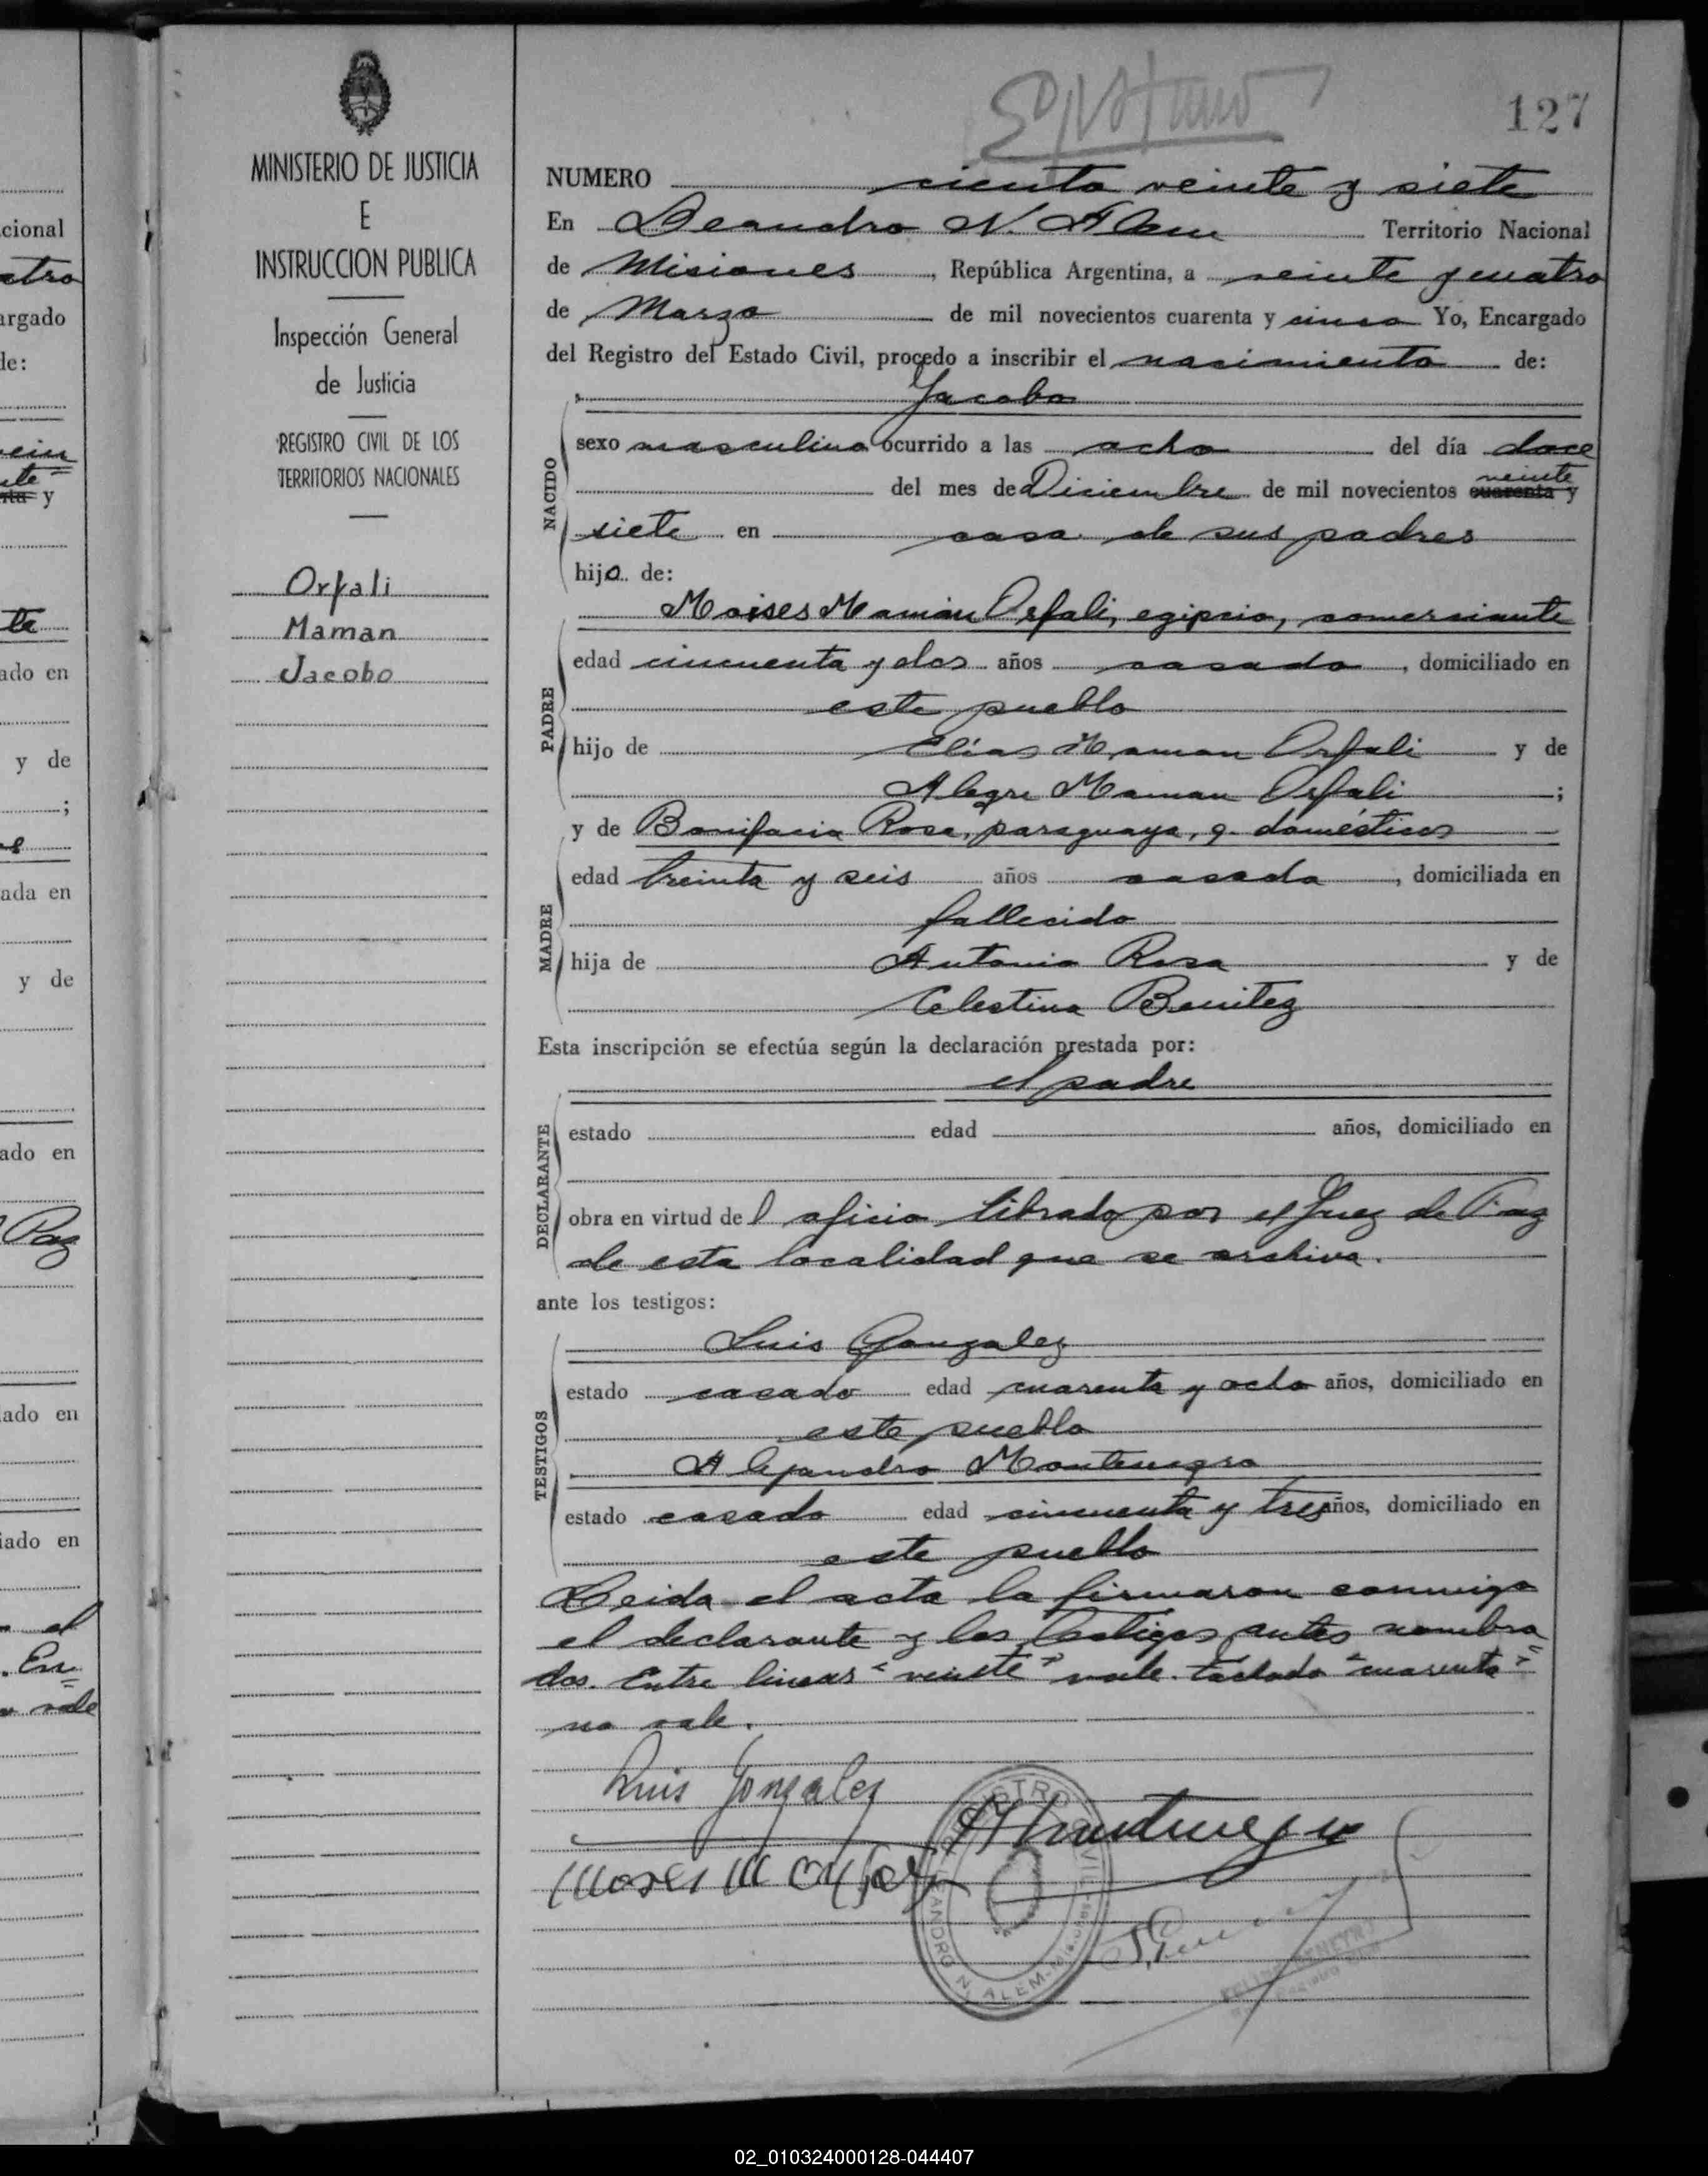 127
MINISTERIO DE JUSTICIA
E
INSTRUCCION PUBLICA
Inspección General
de Justicia
REGISTRO CIVIL DE LOS
TERRITORIOS NACIONALES
Orfali
Maman
Jacobo
NUMERO ciento veinte y siete
En Leandro N. Alem Territorio Nacional
de Misiones, República Argentina, a veinte y cuatro
de Marzo de mil novecientos cuarenta y cinco Yo, Encargado
del Registro del Estado Civil, procedo a inscribir el nacimiento de:
Jacobo
NACIDO
sexo masculino ocurrido a las ocho del día doce
veinte
del mes de Diciembre de mil novecientos cuarenta y
siete en casa de sus padres
hijo de:
Moises Maman Orfali, egipcio, comerciante
PADRE
edad cincuenta y dos años casado, domiciliado en
este pueblo
hijo de Elías Maman Orfali y de
Alegre Maman Orfali;
y de Bonifacia Rosa, paraguaya, q. domésticos
MADRE
edad treinta y seis años casada, domiciliada en
fallecido
hija de Antonio Rosa y de
Celestina Benitez
Esta inscripción se efectúa según la declaración prestada por:
el padre
DECLARANTE
estado edad años, domiciliado en
obra en virtud del oficio librado por el Juez de Paz
de esta localidad que se archiva.
ante los testigos:
Luis Gonzalez
TESTIGOS
estado casado edad cuarenta y ocho años, domiciliado en
este pueblo
Alejandro Montenegro
estado casado edad cincuenta y tres años, domiciliado en
este pueblo
Leida el acta la firmaron conmigo
el declarante y los testigos antes nombra
dos. Entre lineas "veinte" vale. tachado "cuarenta"
no vale.
Luis Gonzalez
AMontenegro
Moises M Orfali
REGISTRO CIVIL
LEANDRO N. ALEM-Misiones
cional
atro
argado
de:
y
te
ado en
y de
;
ada en
y de
ado en
Paz
ado en
iado en
el
En
vale
02_010324000128-044407